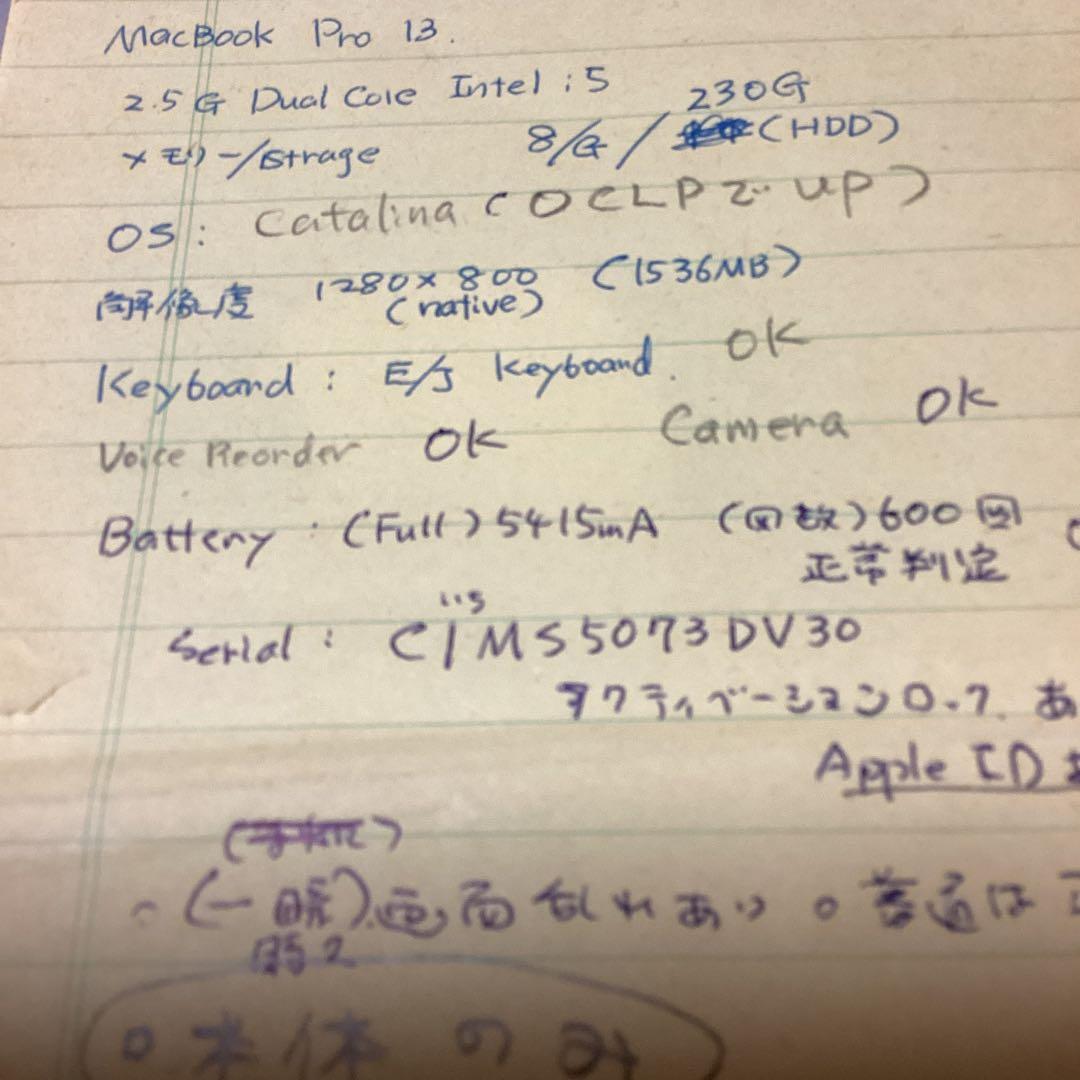 MacBook Pro 13.
2.5 G Dual Core Intel i5
230G
メモリー/Strage 8/G / (HDD)
OS: Catalina (OCLPで up)
解像度 1280×800 (1536MB)
(native)
Keyboard : E/J Keyboard. OK
Voice Reorder OK Camera OK
Battery : (Full) 5415mA (回数) 600回
正常判定
Serial : C1MS5073DV30
アクティベーションロック あ
Apple ID
(一瞬) 画面乱れあり ○ 普通は
○ 本体のみ